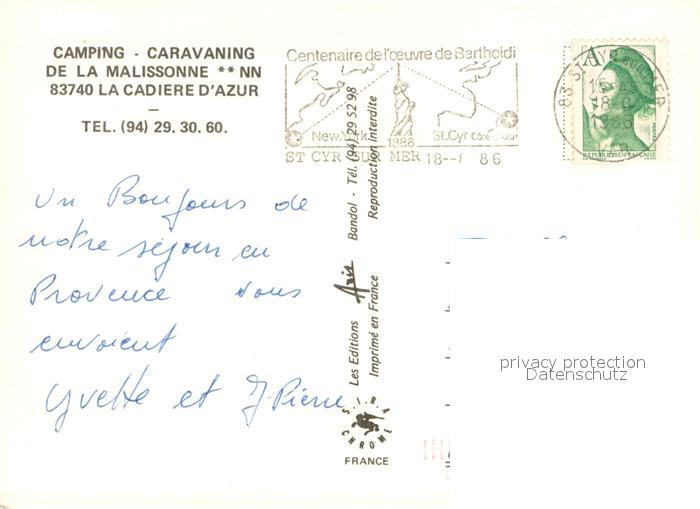 CAMPING - CARAVANING
DE LA MALISSONNE ** NN
83740 LA CADIERE D'AZUR
—
TEL. (94) 29. 30. 60.
Centenaire de l'œuvre de Bartholdi
New York
1886
St.Cyr Côte d'Azur
ST CYR SUR MER 18-- 86
A
REPUBLIQUE FRANÇAISE
Un Bonjours de
notre séjour en
Provence vous
envoient
Yvette et J Pierre
Les Editions Azis Bandol - Tél. (94) 29 52 98
Imprimé en France Reproduction interdite
SIRA
CHROME
FRANCE
privacy protection
Datenschutz